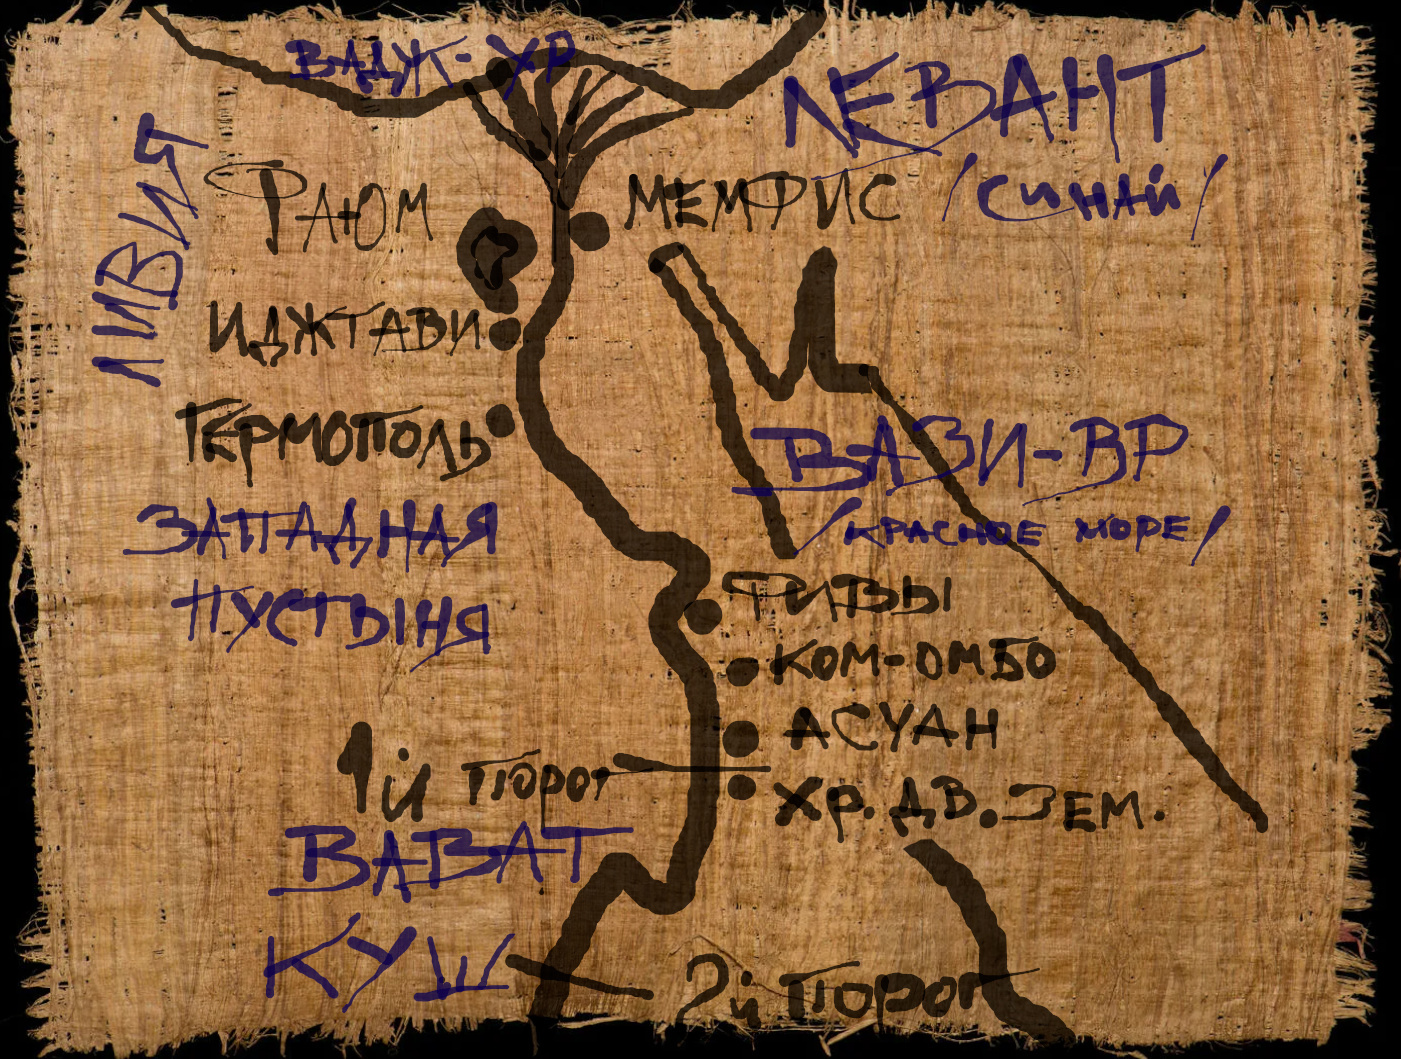 ВАДЖ-ХР
ЛЕВАНТ
/СИНАЙ/
ЛИВИЯ
ФАЮМ
МЕМФИС
ИДЖТАВИ
ГЕРМОПОЛЬ
ВАЗИ-ВР
/КРАСНОЕ МОРЕ/
ЗАПАДНАЯ
ПУСТЫНЯ
ФИВЫ
КОМ-ОМБО
АСУАН
1й ПОРОГ
ХР. ДВ. ЗЕМ.
ВАВАТ
КУШ
2й ПОРОГ